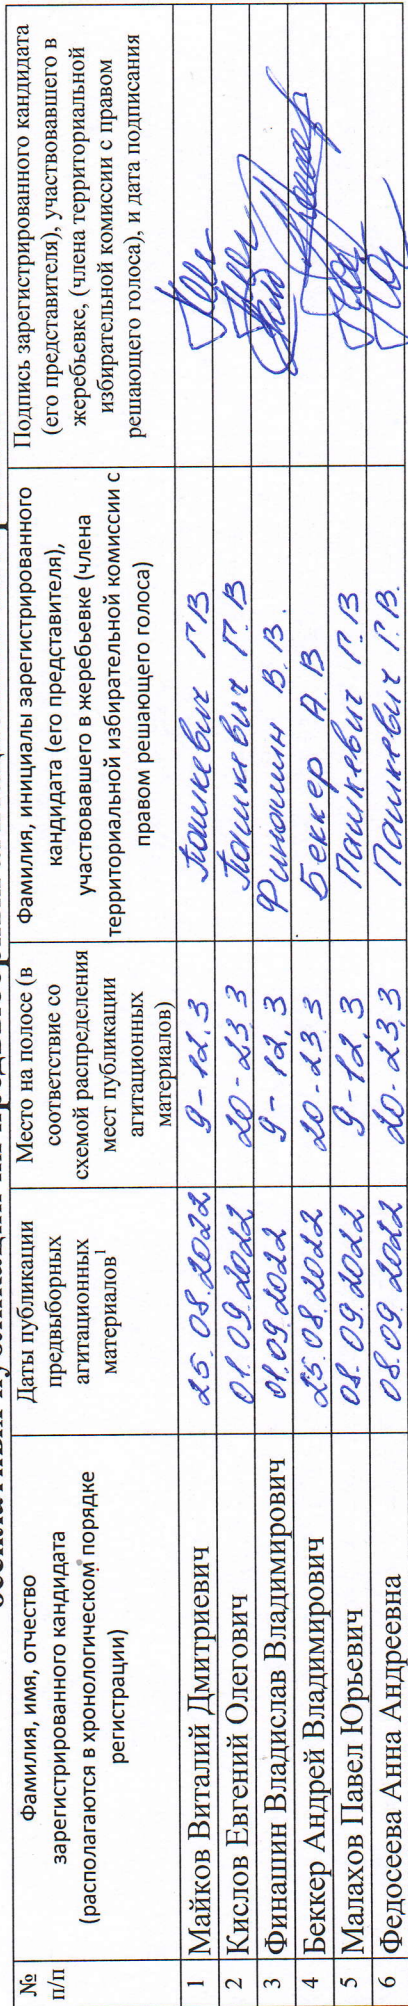 №
п/п
Фамилия, имя, отчество
зарегистрированного кандидата
(располагаются в хронологическом порядке
регистрации)
Даты публикации
предвыборных
агитационных
материалов¹
Место на полосе (в
соответствие со
схемой распределения
мест публикации
агитационных
материалов)
Фамилия, инициалы зарегистрированного
кандидата (его представителя),
участвовавшего в жеребьевке (члена
территориальной избирательной комиссии с
правом решающего голоса)
Подпись зарегистрированного кандидата
(его представителя), участвовавшего в
жеребьевке, (члена территориальной
избирательной комиссии с правом
решающего голоса), и дата подписания
1 Майков Виталий Дмитриевич 25.08.2022 9-12,3 Пашкевич Г.В
2 Кислов Евгений Олегович 01.09.2022 20-23,3 Пашкевич Г.В
3 Финашин Владислав Владимирович 01.09.2022 9-12,3 Финашин В.В.
4 Беккер Андрей Владимирович 25.08.2022 20-23,3 Беккер А В
5 Малахов Павел Юрьевич 08.09.2022 9-12,3 Пашкевич Г.В
6 Федосеева Анна Андреевна 08.09.2022 20-23,3 Пашкевич Г.В.